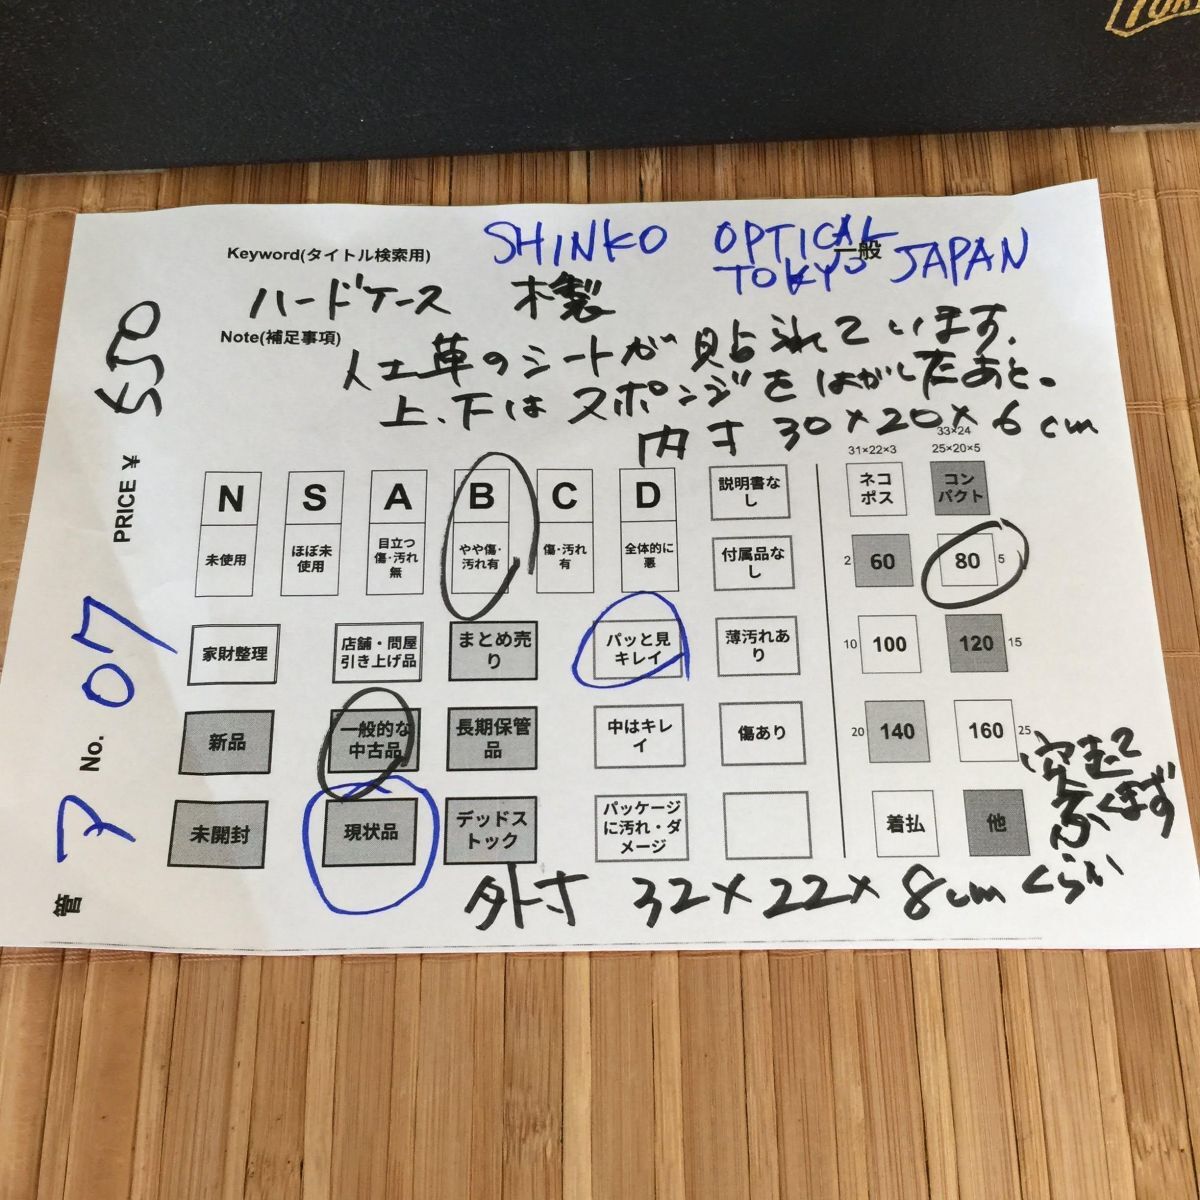 Keyword(タイトル検索用)
SHINKO OPTICAL
TOKYO JAPAN
一般
ハードケース 木製
Note(補足事項)
人工革のシートが貼られています.
上、下はスポンジをはがしたあと。
内寸 30×20×6cm
PRICE ¥ 550
N S A B C D
未使用
ほぼ未使用
目立つ傷・汚れ無
やや傷・汚れ有
傷・汚れ有
全体的に悪
説明書なし
付属品なし
31×22×3
ネコポス
33×24
25×20×5
コンパクト
2 60 80 5
家財整理
店舗・問屋引き上げ品
まとめ売り
パッと見キレイ
薄汚れあり
10 100 120 15
新品
一般的な中古品
長期保管品
中はキレイ
傷あり
20 140 160 25
未開封
現状品
デッドストック
パッケージに汚れ・ダメージ
着払
他
ふくまず
外寸 32×22×8cmくらい
管 ア No. 07